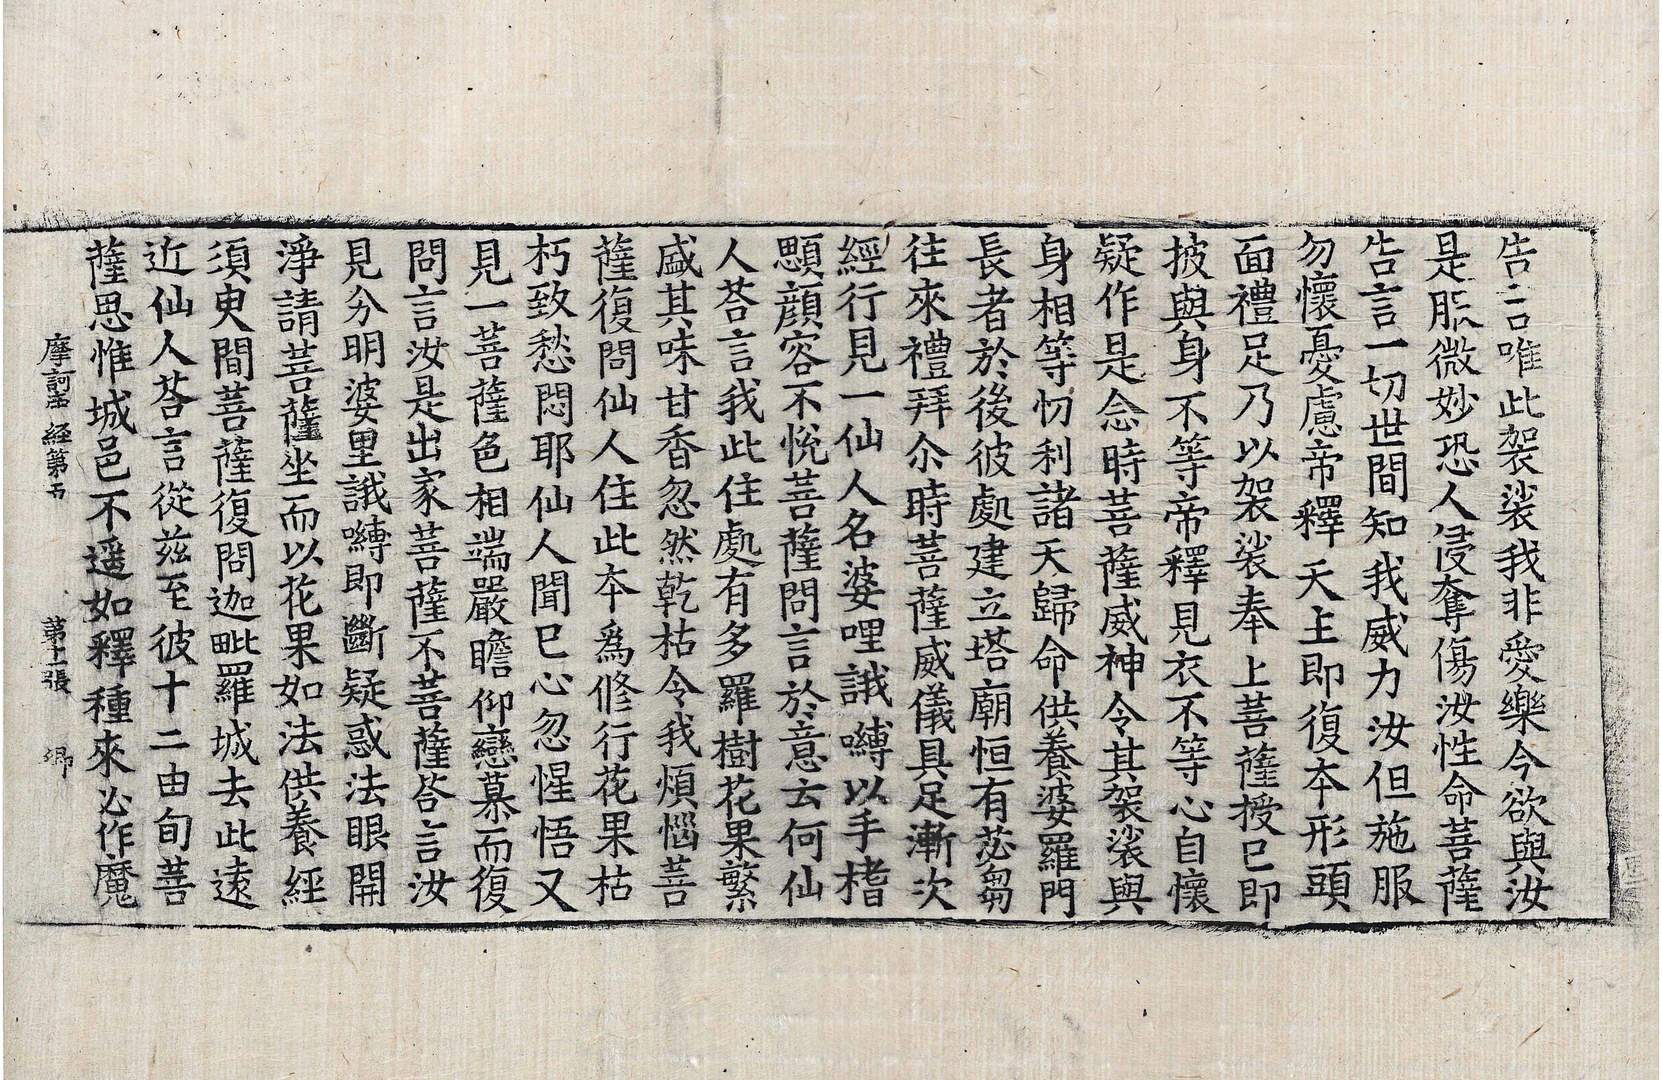 告言唯此袈裟我非愛樂今欲與汝
是服微妙恐人侵奪傷汝性命菩薩
告言一切世間知我威力汝但施服
勿懷憂慮帝釋天主即復本形頭
面禮足乃以袈裟奉上菩薩授已即
披與身不等帝釋見衣不等心自懷
疑作是念時菩薩威神令其袈裟與
身相等忉利諸天歸命供養婆羅門
長者於後彼處建立塔廟恒有苾芻
往來禮拜尒時菩薩威儀具足漸次
經行見一仙人名婆哩誐嚩以手㨙
顋顔容不悅菩薩問言於意云何仙
人荅言我此住處有多羅樹花果繁
盛其味甘香忽然乾枯令我煩惱菩
薩復問仙人住此本爲修行花果枯
朽致愁悶耶仙人聞已心忽惺悟又
見一菩薩色相端嚴瞻仰戀慕而復
問言汝是出家菩薩不菩薩荅言汝
見分明婆里誐嚩即斷疑惑法眼開
淨請菩薩坐而以花果如法供養經
須臾間菩薩復問迦毗羅城去此遠
近仙人荅言從兹至彼十二由旬菩
薩思惟城邑不遥如釋種來必作魔
摩訶帝經第五 第十二張 卿